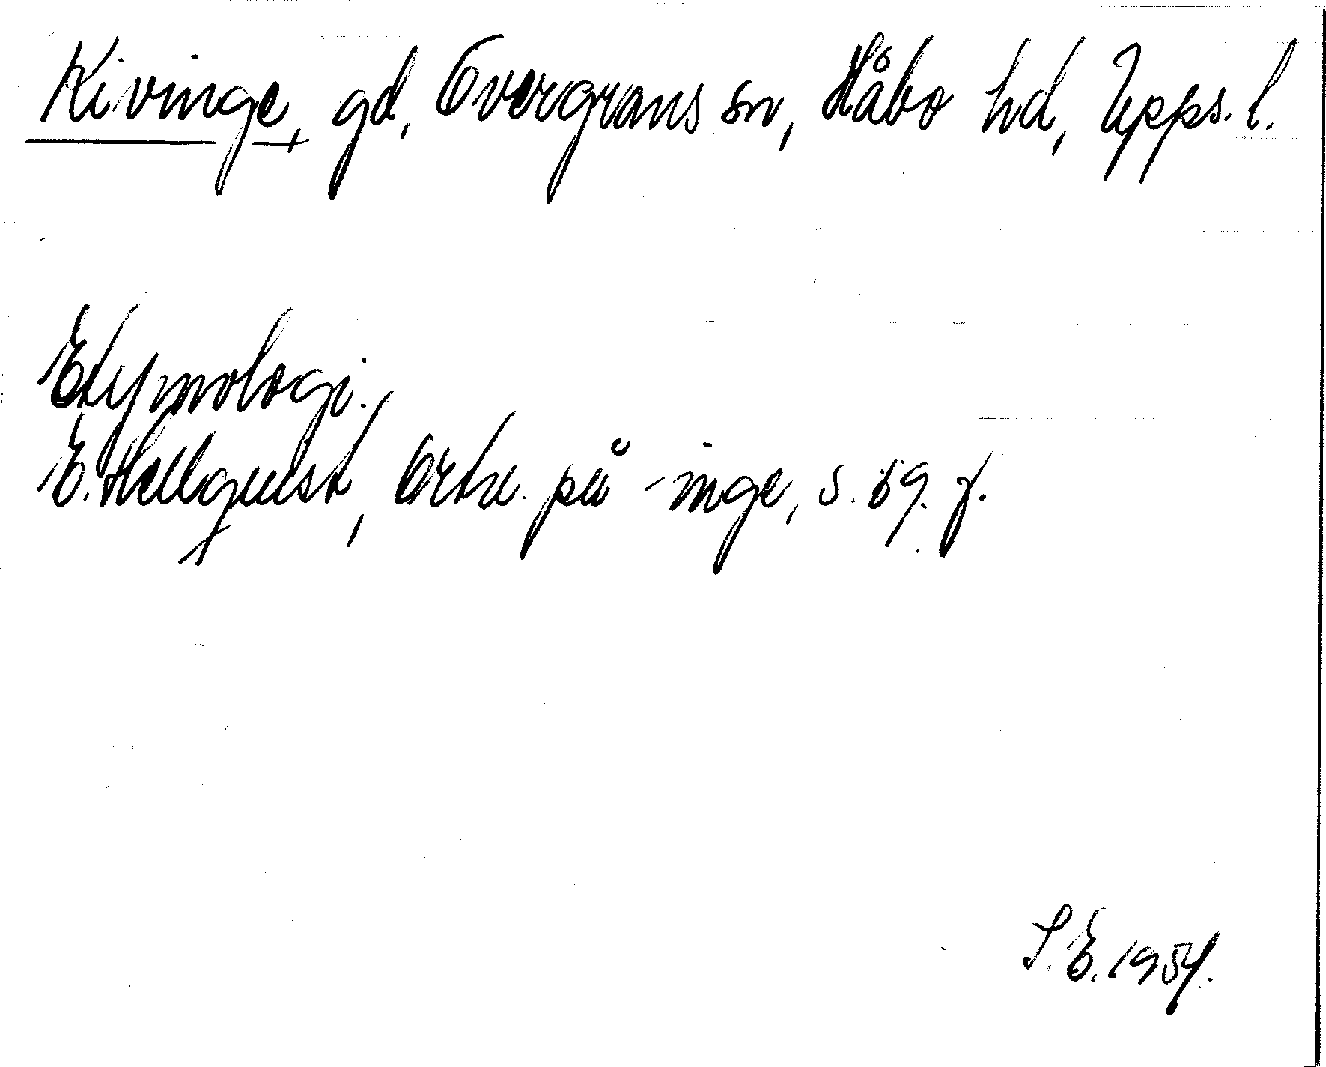 Kivinge, gd, Övergrans sn, Håbo hd, Upps. l.
Etymologi.
E. Hellquist, Ortn. på -inge, s. 69. f.
S. E. 1954.